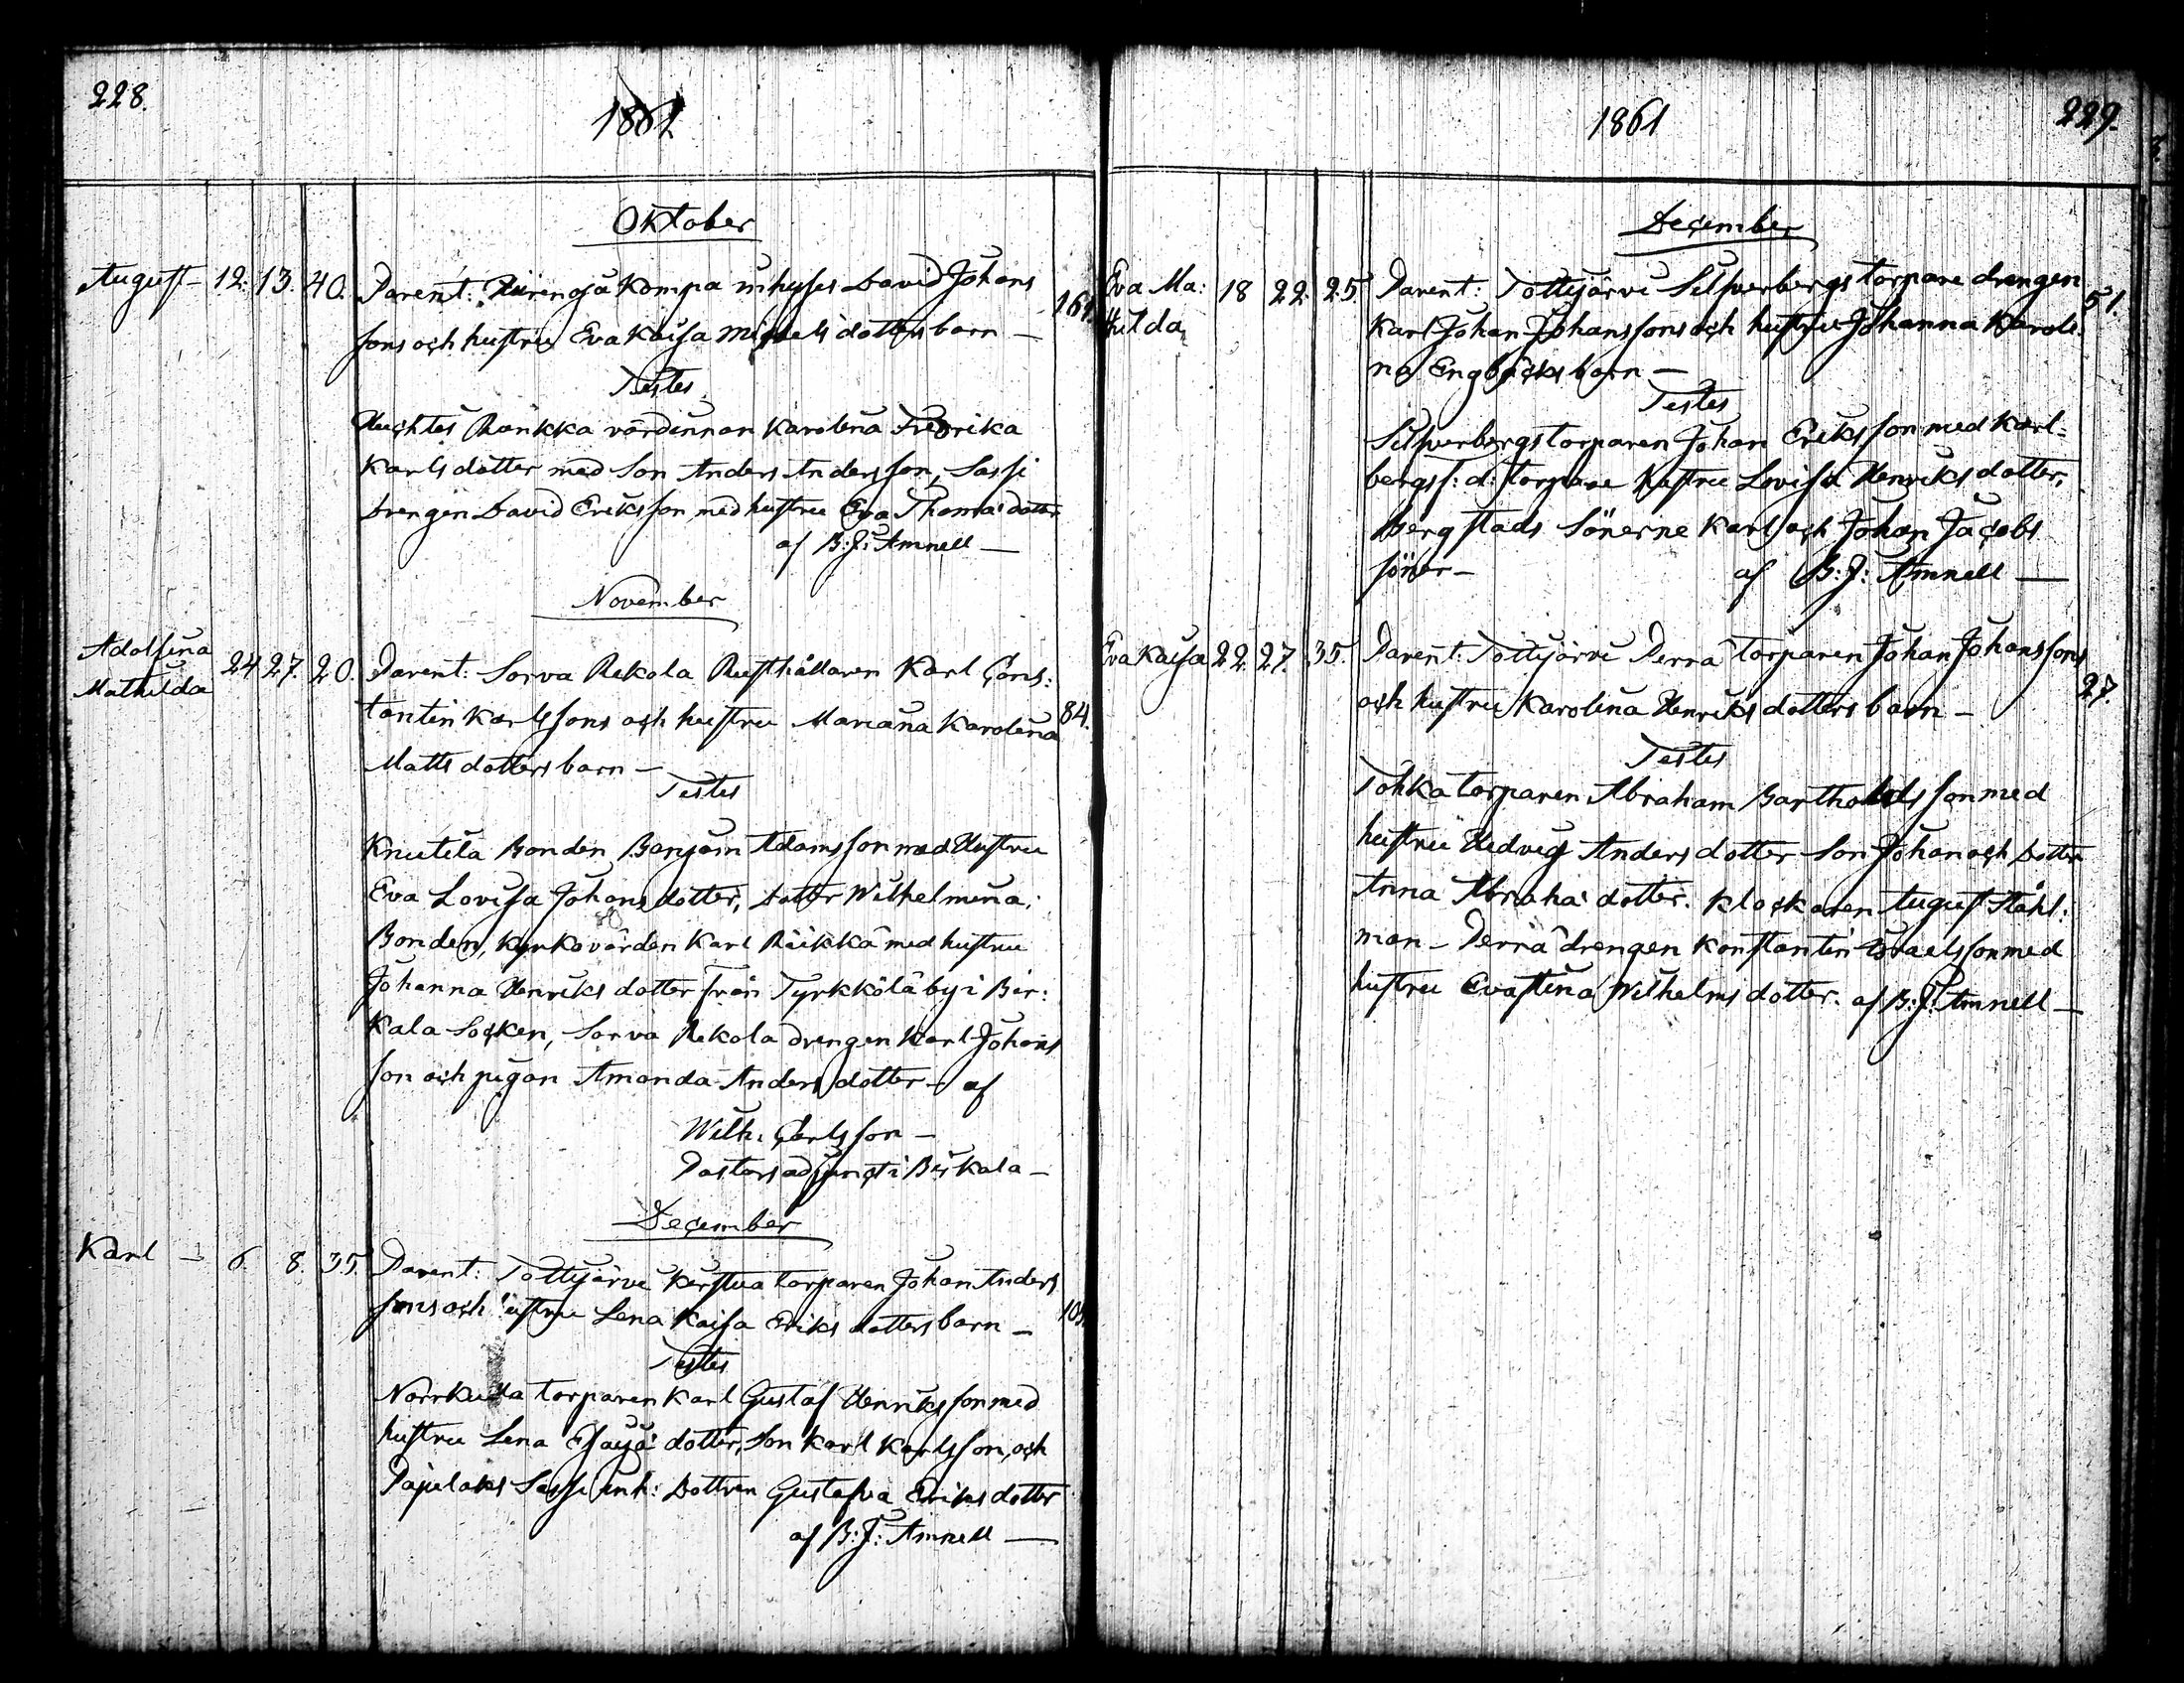 228.
1861
Oktober
August - 12. 13. 40. Parent: Hirenoja Kompa inhyses David Johans
sons och hustru Eva Kaisa Mickels dotters barn - 161.
Testes
Huchtis Ränkka värdinnan Karolina Fredrika
Karls dotter med Son Anders Andersson, Sassi
Drengen David Eriksson med hustru Eva Thomas dotter
af B: J: Amnell -
November
Adolfina
Mathilda 24 27. 20. Parent: Sorva Rekola Rusthållaren Karl Cons:
tantin Karlssons och hustru Mariana Karolina 84.
Matts dotters barn -
Testes
Knutila Bonden Benjam Adamsson med Hustru
Eva Lovisa Johans dotter, Dotter Wilhelmina.
Bonden, Kyrkovärden Karl Räikkä med hustru
Johanna Henriks dotter från Tyrkkölä by i Bir:
kala Socken, Sorva Rekola drengen Karl Johans
son och pigan Amanda Anders dotter - af
Wilh. Carlsson -
Pastorsadjunct i Birkala -
December
Karl - 6. 8. 35. Parent: Tottijärvi Kerstua torparen Johan Anders
sons och hustru Lena Kaisa Eriks dotters barn - 105.
Testes
Norrkulla torparen Karl Gustaf Henriksson med
hustru Lena Esaja dotter, Son Karl Karlsson, och
Pajulaks Sassi inh: Dottren Gustafva Eriks dotter
af B: J: Amnell -
229.
1861
December
Eva Ma:
Hilda 18 22. 25. Parent: Tottijärvi Silfverbergs torpare drengen 51.
Karl Johan Johanssons och hustru Johanna Karoli
na Engbäcks barn -
Testes
Silfverbergs torparen Johan Eriksson med Karl-
bergs f: d: torpare hustru Lovisa Henriks dotter,
Bergstads Sönerne Karl och Johan Jacobs
söner - af B: J: Amnell -
Eva Kaisa 22. 27. 35. Parent: Tottijärvi Perrä torparen Johan Johanssons 27.
och hustru Karolina Henriks dotters barn -
Testes
Tohka torparen Abraham Bartholdsson med
hustru Hedvig Anders dotter Son Johan och dotter
Anna Abraha dotter. Klockaren August Ståhl:
man - Perrä drengen Konstantin Israelsson med
hustru Evastina Wilhelms dotter. af B: J: Amnell -